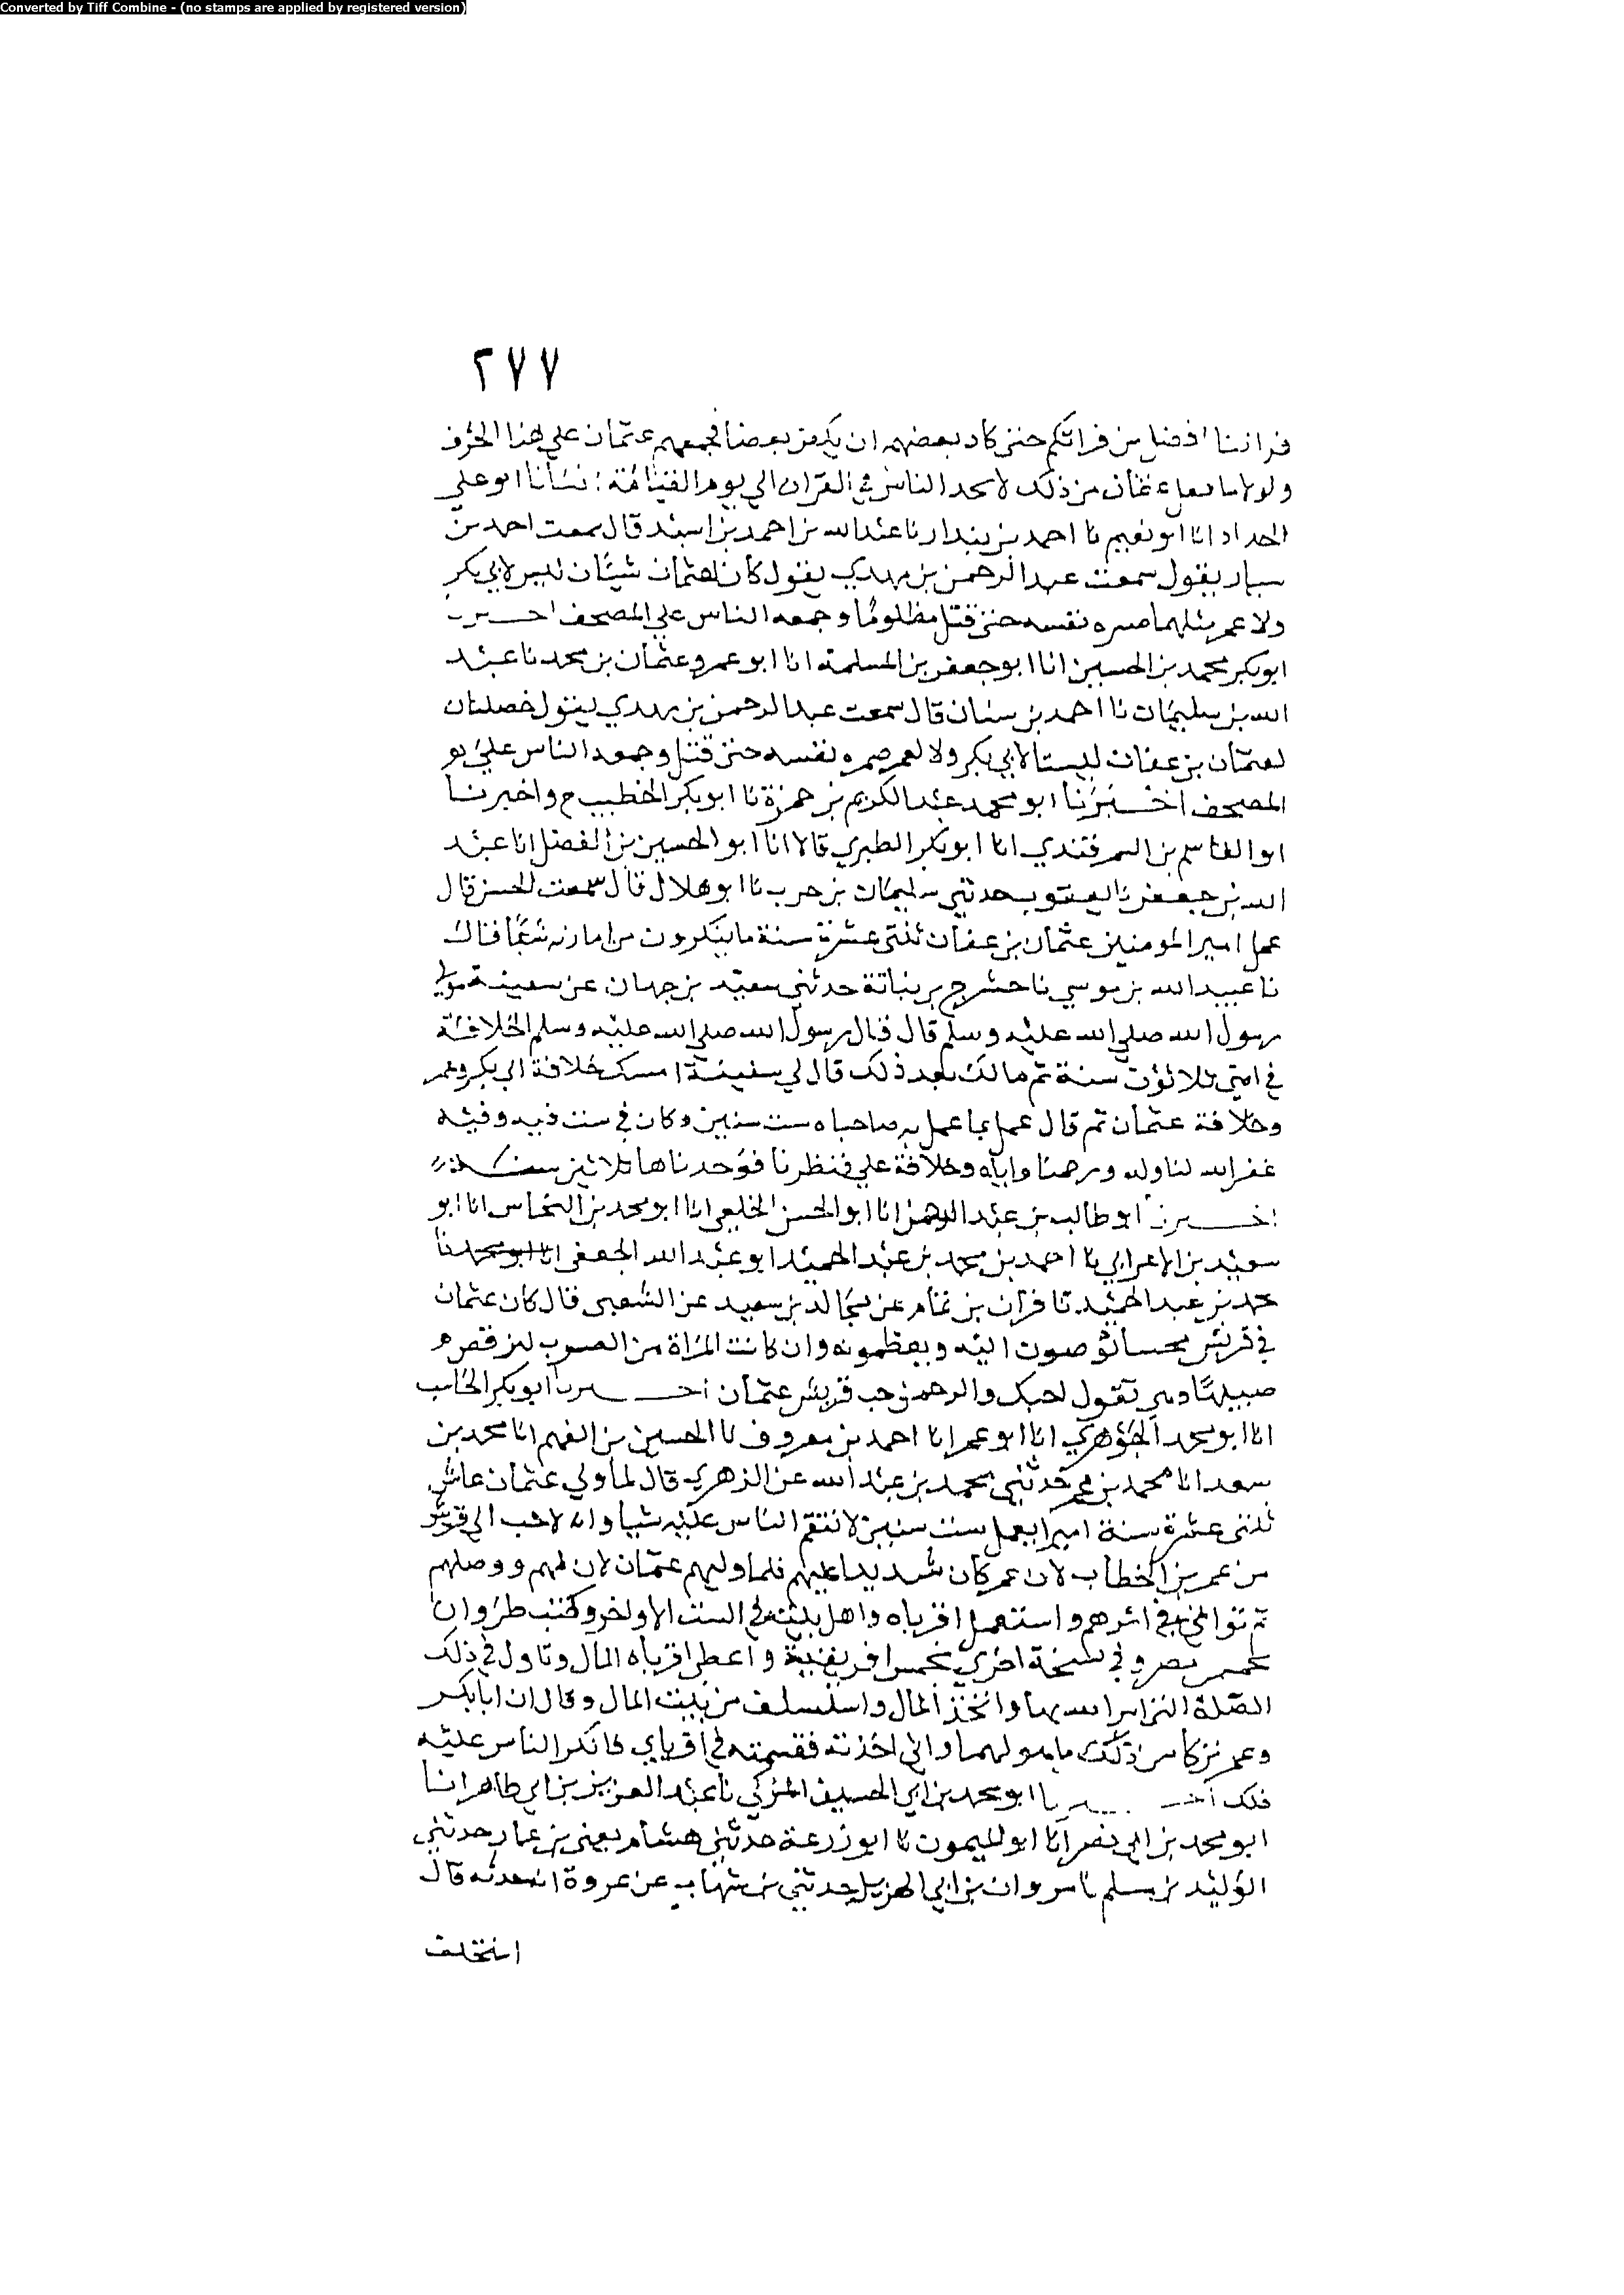 Converted by Tiff Combine - (no stamps are applied by registered version)
٢٧٧
قراتنا افضل من قراتكم حتى كاد بعضهم ان يكفر بعضا فجمعهم عثمان على هذا الحرف
ولولا ما فعل عثمان من ذلك الناس في القران الى يوم القيامة انبانا ابو علي
الحداد انا ابو نعيم نا احمد بن بندار نا عبد الله بن احمد بن اسيد قال سمعت احمد بن
سيار يقول سمعت عبد الرحمن بن مهدي يقول كان لعثمان شيئان ليس لابي بكر
ولا عمر مثلهما صبره نفسه حتى قتل مظلوما وجمعه الناس على المصحف اخبرنا
ابو بكر محمد بن الحسين انا ابو جعفر بن المسلمة انا ابو عمرو عثمان بن محمد نا عبد
الله بن سليمان نا احمد بن سنان قال سمعت عبد الرحمن بن مهدي يقول خصلتان
لعثمان بن عفان ليستا لابي بكر ولا لعمر صبره نفسه حتى قتل وجمعه الناس على
المصحف اخبرنا ابو محمد عبد الكريم بن حمزة نا ابو بكر الخطيب ح واخبرنا
ابو القاسم بن السمرقندي انا ابو بكر الطبري قالا انا ابو الحسين بن الفضل انا عبد
الله بن جعفر نا يعقوب حدثني سليمان بن حرب نا ابو هلال قال سمعت الحسن قال
عمل امير المومنين عثمان بن عفان ثنتي عشرة سنة ما ينكرون من امارته شيئا قال
نا عبيد الله بن موسي نا حشرج بن نباتة حدثني سعيد بن جهمان عن سفينة مولى
رسول الله صلى الله عليه وسلم قال قال رسول الله صلى الله عليه وسلم الخلافة
في امتي ثلاثون سنة ثم ملك بعد ذلك قال لي سفينة امسك خلافة ابي بكر وعمر
وخلافة عثمان ثم قال عمل بما عمل به صاحباه ست سنين وكان في ست فيه وفيه
غفر الله لنا وله ورحمنا واياه وخلافة علي فنظرنا فوجدناها ثلاثين سنة
اخبرنا ابو طالب بن عبد الرحمن انا ابو الحسن الخلعي انا ابو محمد بن النحاس انا ابو
سعيد بن الاعرابي نا احمد بن محمد بن عبد الحميد ابو عبد الله الجعفي انا ابو محمد نا
محمد بن عبد الحميد نا فرات بن تمام عن مجالد بن سعيد عن الشعبي قال كان عثمان
في قريش اليه ويعظمونه وان كانت المراة من العرب لترقص
صبيها وهي تقول احبك والرحمن حب قريش عثمان اخبرنا ابو بكر الحاسب
انا ابو محمد الجوهري انا ابو عمر انا احمد بن معروف نا الحسين بن الفهم انا محمد بن
سعد انا محمد بن عمر حدثني محمد بن عبد الله عن الزهري قال لما ولي عثمان عاش
ثنتي عشرة سنة اميرا يعمل ست سنين لا ينقم الناس عليه شيا وانه لاحب الى قريش
من عمر بن الخطاب لان عمر كان شديدا عليهم فلما وليهم عثمان لان لهم ووصلهم
ثم توانى في امرهم واستعمل اقرباه واهل بيته في الست الاواخر وكتب لمروان
بخمس مصر وفي نسخة اخرى بخمس افريقية واعطى اقرباه المال وتاول في ذلك
الصلة التي امر الله بها واتخذ المال واستسلف من بيت المال وقال ان ابا بكر
وعمر تركا من ذلك ما هو لهما واني اخذته فقسمته في اقرباي فانكر الناس عليه
ذلك اخبرنا ابو محمد بن المزكي نا عبد العزيز بن ابي طاهر انا
ابو محمد بن ابي نصر انا ابو الميمون نا ابو زرعة حدثني هشام يعني بن عمار حدثني
الوليد بن مسلم نا مروان بن ابي الهزيل حدثني بن شهاب عن عروة انه حدثه قال
استخلف